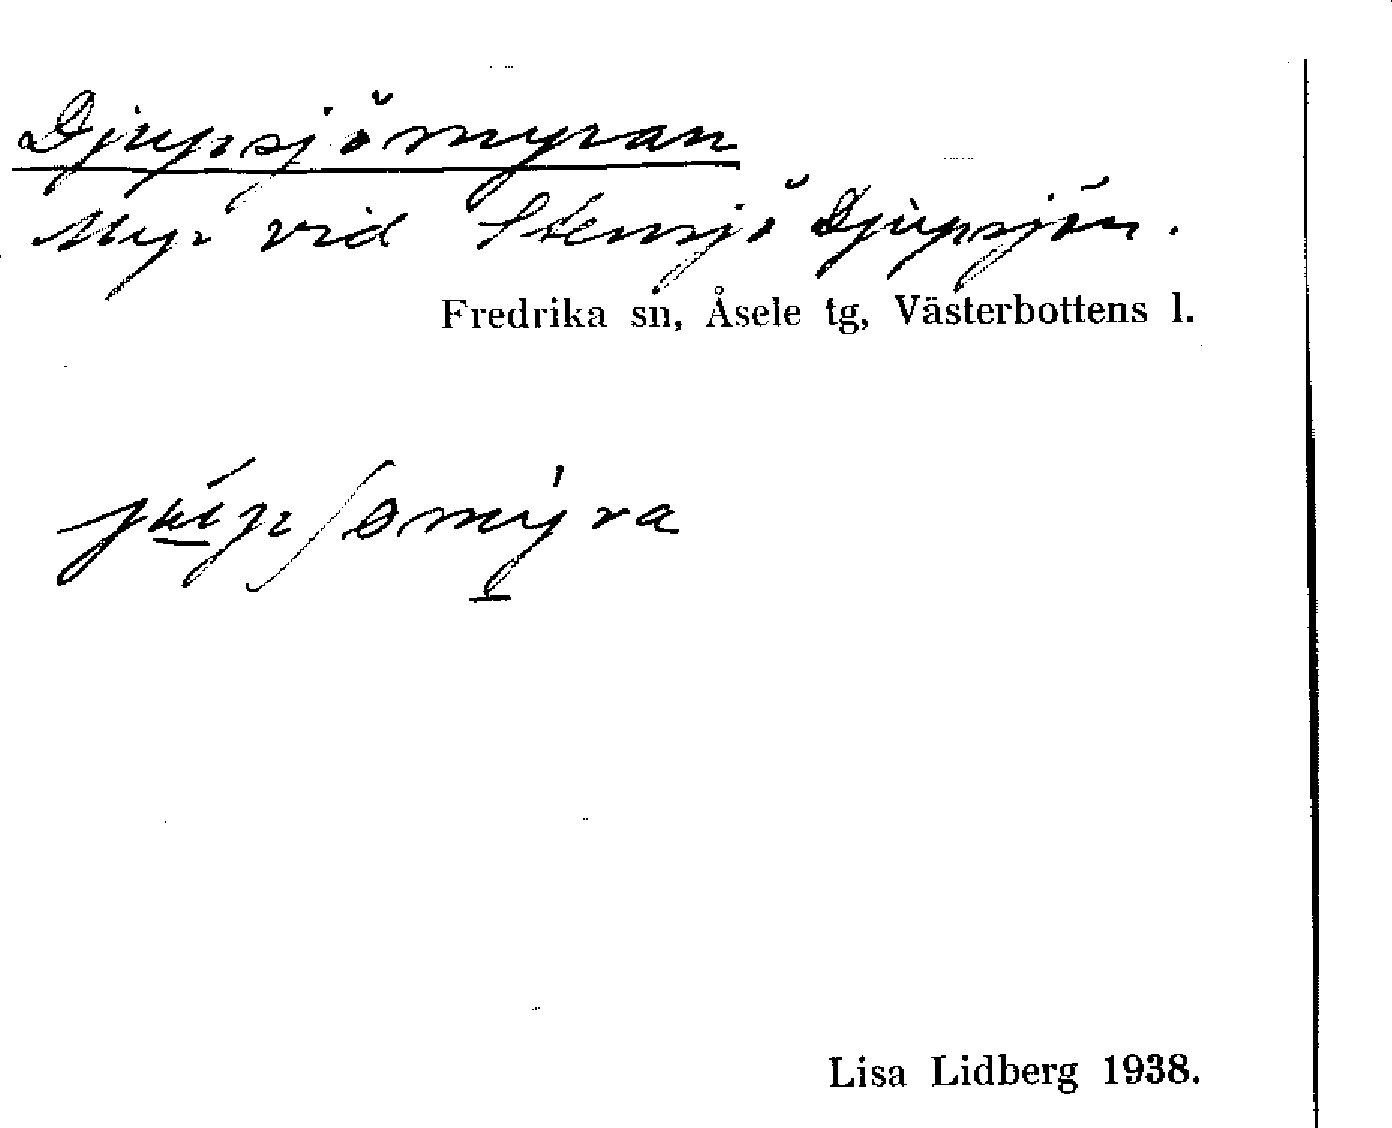 Djupsjömyran
Myr vid Stensjö Djupsjön.
Fredrika sn, Åsele tg, Västerbottens l.
Lisa Lidberg 1938.